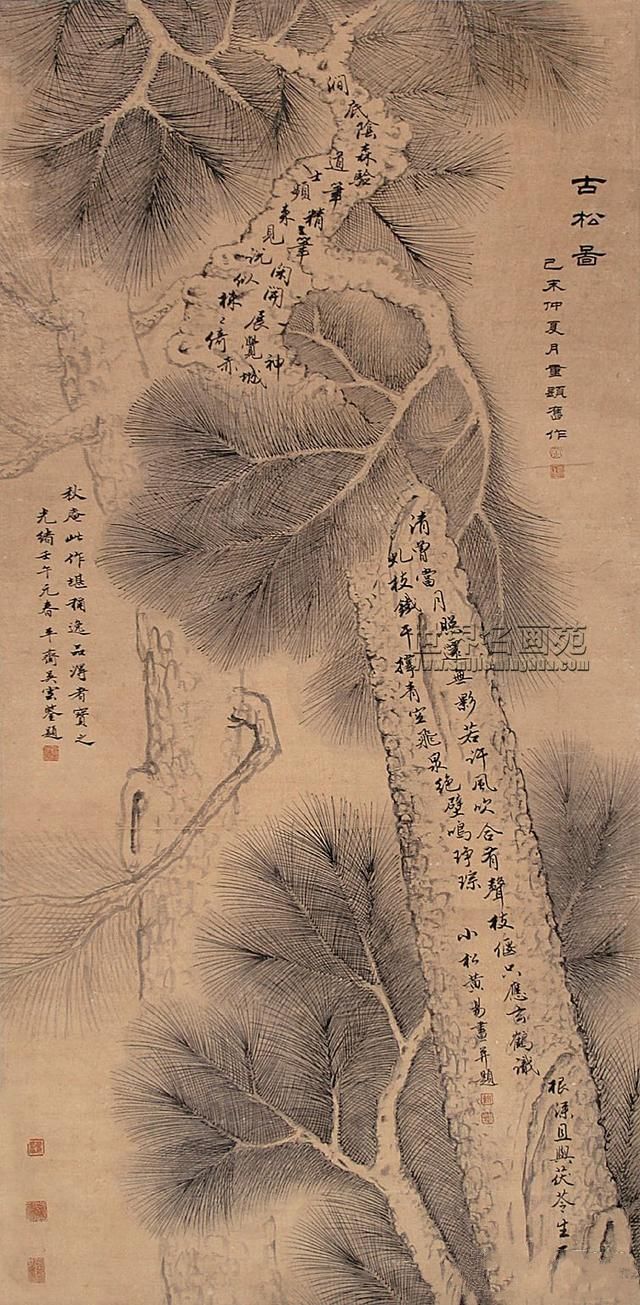 古松啚
己未仲夏月重題舊作
澗底陰森驗
筆精筆閑開展覺神
清曾當月照還無影若許風吹合有聲枝偃只應玄鶴識
根深且與茯苓生
道士頻來見說似株〻倚赤城
虬枝鐵干青空飛泉絕壁鳴琤琮
小松黃易畫并題
秋庵此作堪稱逸品得者寶之
光緒壬午元春平齋吳雲鑒題
世界名画苑